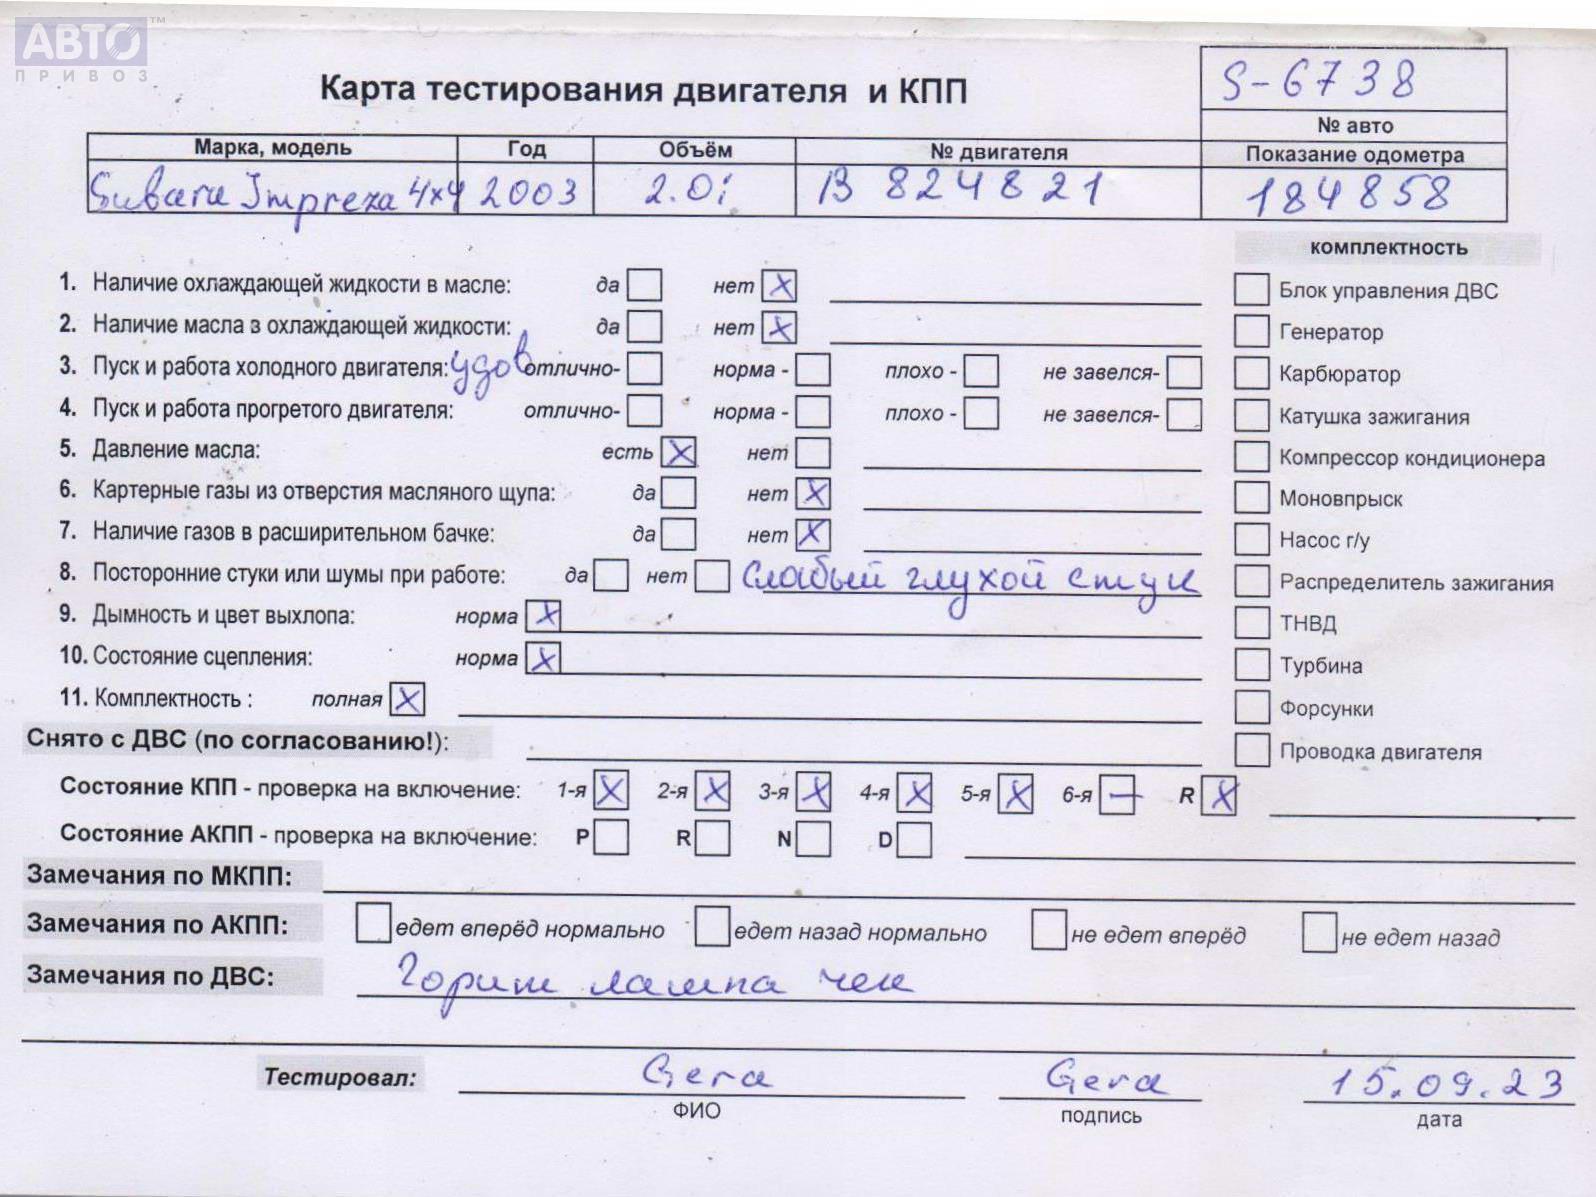 АВТО™
ПРИВОЗ
Карта тестирования двигателя и КПП
S-6738
№ авто
Марка, модель Год Объём № двигателя Показание одометра
Subaru Impreza 4x4 2003 2.0i B 824821 184858
комплектность
1. Наличие охлаждающей жидкости в масле: да нет X
Блок управления ДВС
2. Наличие масла в охлаждающей жидкости: да нет X
Генератор
3. Пуск и работа холодного двигателя: удов отлично- норма - плохо - не завелся-
Карбюратор
4. Пуск и работа прогретого двигателя: отлично- норма - плохо - не завелся-
Катушка зажигания
5. Давление масла: есть X нет
Компрессор кондиционера
6. Картерные газы из отверстия масляного щупа: да нет X
Моновпрыск
7. Наличие газов в расширительном бачке: да нет X
Насос г/у
8. Посторонние стуки или шумы при работе: да нет Слабый глухой стук
Распределитель зажигания
9. Дымность и цвет выхлопа: норма X
ТНВД
10. Состояние сцепления: норма X
Турбина
11. Комплектность : полная X
Форсунки
Снято с ДВС (по согласованию!):
Проводка двигателя
Состояние КПП - проверка на включение: 1-я X 2-я X 3-я X 4-я X 5-я X 6-я — R X
Состояние АКПП - проверка на включение: P R N D
Замечания по МКПП:
Замечания по АКПП: едет вперёд нормально едет назад нормально не едет вперёд не едет назад
Замечания по ДВС: Горит лампа чек
Тестировал: Gera Gera 15.09.23
ФИО подпись дата